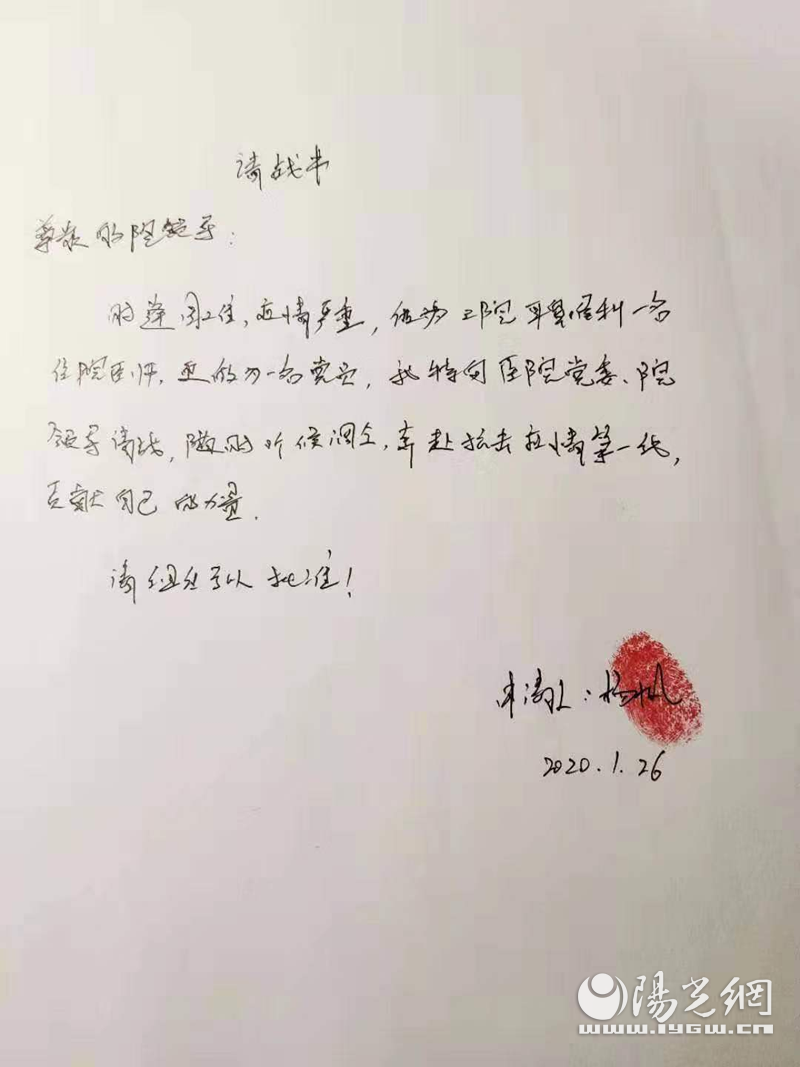 请战书
尊敬的院领导：
时逢国难，疫情严重，作为二院耳鼻喉科一名
住院医师，更做为一名党员，我特向医院党委、院
领导请战，随时听候调令，奔赴抗击疫情第一线，
贡献自己的力量.
请组织予以批准！
申请人：杨帆
2020.1.26
陽光網
www.iygw.cn